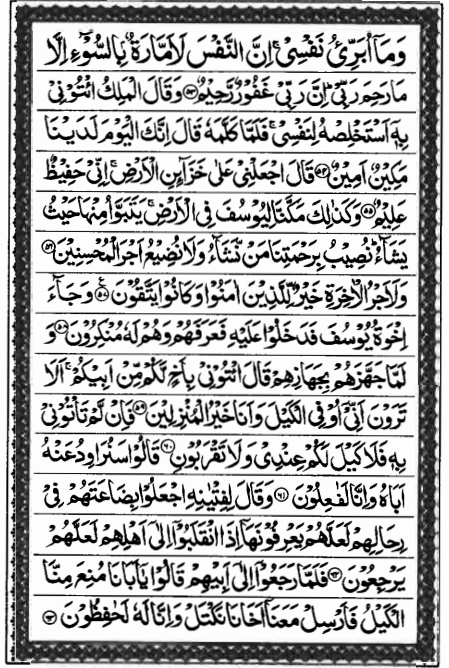 وَمَآ اُبَرِّئُ نَفْسِیْ ۚ اِنَّ النَّفْسَ لَاَمَّارَةٌۢ بِالسُّوْٓءِ اِلَّا
مَا رَحِمَ رَبِّیْ ؕ اِنَّ رَبِّیْ غَفُوْرٌ رَّحِیْمٌ ﴿۵۳﴾ وَقَالَ الْمَلِكُ ائْتُوْنِیْ
بِهٖۤ اَسْتَخْلِصْهُ لِنَفْسِیْ ۚ فَلَمَّا كَلَّمَهٗ قَالَ اِنَّكَ الْیَوْمَ لَدَیْنَا
مَكِیْنٌ اَمِیْنٌ ﴿۵۴﴾ قَالَ اجْعَلْنِیْ عَلٰی خَزَآئِنِ الْاَرْضِ ۚ اِنِّیْ حَفِیْظٌ
عَلِیْمٌ ﴿۵۵﴾ وَكَذٰلِكَ مَكَّنَّا لِیُوْسُفَ فِی الْاَرْضِ ۚ یَتَبَوَّاُ مِنْهَا حَیْثُ
یَشَآءُ ؕ نُصِیْبُ بِرَحْمَتِنَا مَنْ نَّشَآءُ وَلَا نُضِیْعُ اَجْرَ الْمُحْسِنِیْنَ ﴿۵۶﴾
وَلَاَجْرُ الْاٰخِرَةِ خَیْرٌ لِّلَّذِیْنَ اٰمَنُوْا وَكَانُوْا یَتَّقُوْنَ ﴿۵۷﴾ وَجَآءَ
اِخْوَةُ یُوْسُفَ فَدَخَلُوْا عَلَیْهِ فَعَرَفَهُمْ وَهُمْ لَهٗ مُنْكِرُوْنَ ﴿۵۸﴾ وَ
لَمَّا جَهَّزَهُمْ بِجَهَازِهِمْ قَالَ ائْتُوْنِیْ بِاَخٍ لَّكُمْ مِّنْ اَبِیْكُمْ ۚ اَلَا
تَرَوْنَ اَنِّیْۤ اُوْفِی الْكَیْلَ وَاَنَا خَیْرُ الْمُنْزِلِیْنَ ﴿۵۹﴾ فَاِنْ لَّمْ تَاْتُوْنِیْ
بِهٖ فَلَا كَیْلَ لَكُمْ عِنْدِیْ وَلَا تَقْرَبُوْنِ ﴿۶۰﴾ قَالُوْا سَنُرَاوِدُ عَنْهُ
اَبَاهُ وَاِنَّا لَفٰعِلُوْنَ ﴿۶۱﴾ وَقَالَ لِفِتْیٰنِهِ اجْعَلُوْا بِضَاعَتَهُمْ فِیْ
رِحَالِهِمْ لَعَلَّهُمْ یَعْرِفُوْنَهَاۤ اِذَا انْقَلَبُوْۤا اِلٰۤی اَهْلِهِمْ لَعَلَّهُمْ
یَرْجِعُوْنَ ﴿۶۲﴾ فَلَمَّا رَجَعُوْۤا اِلٰۤی اَبِیْهِمْ قَالُوْا یٰۤاَبَانَا مُنِعَ مِنَّا
الْكَیْلُ فَاَرْسِلْ مَعَنَاۤ اَخَانَا نَكْتَلْ وَاِنَّا لَهٗ لَحٰفِظُوْنَ ﴿۶۳﴾